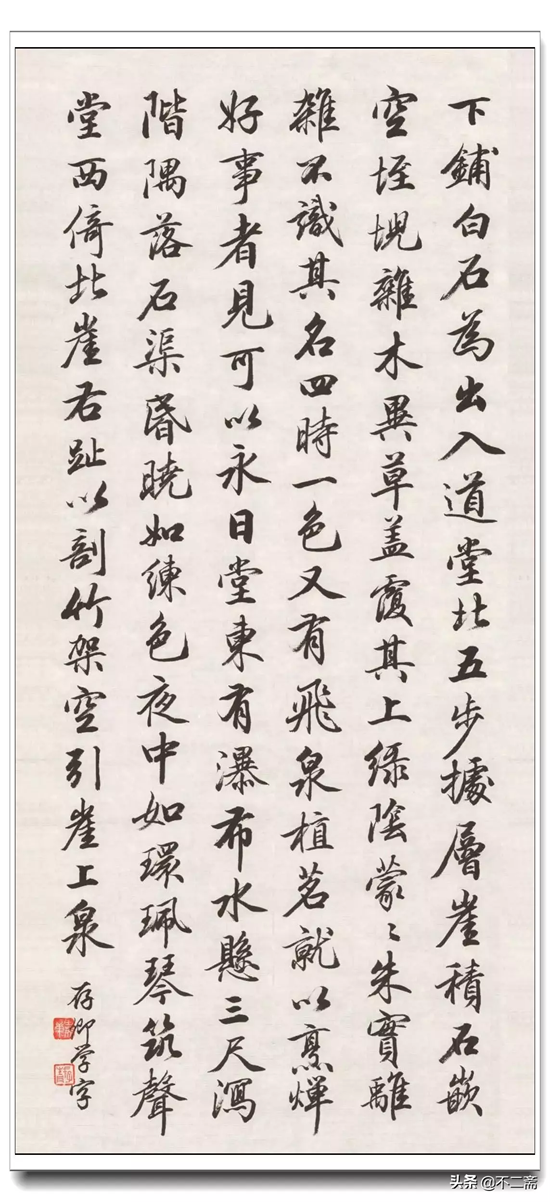 下鋪白石為出入道堂北五步據層崖積石嵌
空垤堄雜木異草盖覆其上绿陰蒙〻朱實離
雜不識其名四時一色又有飛泉植茗就以烹燀
好事者見可以永日堂東有瀑布水懸三尺瀉
階隅落石渠昏曉如練色夜中如環珮琴筑聲
堂西倚北崖右趾以剖竹架空引崖上泉
存卿学字
头条 @不二斋